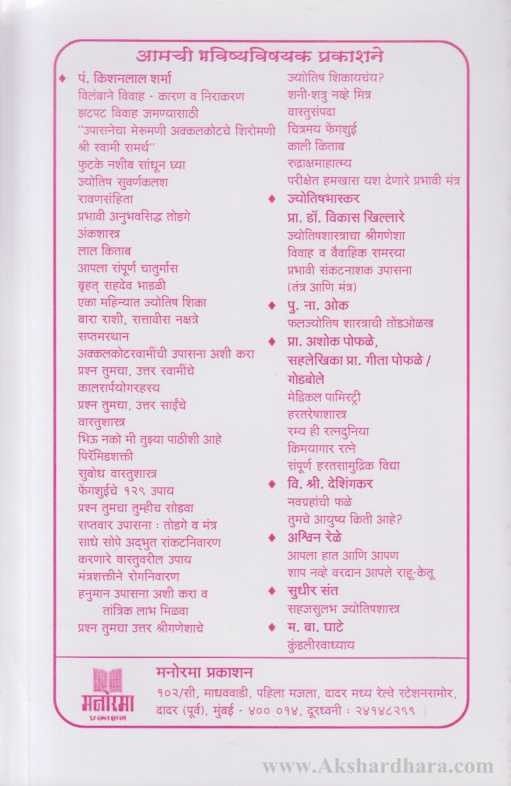 आमची भविष्यविषयक प्रकाशने
♦ पं. किशनलाल शर्मा
विलंबाने विवाह - कारण व निराकरण
झटपट विवाह जमण्यासाठी
"उपासनेचा मेरूमणी अक्कलकोटचे शिरोमणी
श्री स्वामी समर्थ"
फुटके नशीब सांधून घ्या
ज्योतिष सुवर्णकलश
रावणसंहिता
प्रभावी अनुभवसिद्ध तोडगे
अंकशास्त्र
लाल किताब
आपला संपूर्ण चातुर्मास
बृहत् सहदेव भाडळी
एका महिन्यात ज्योतिष शिका
बारा राशी, सत्तावीस नक्षत्रे
सप्तमस्थान
अक्कलकोटस्वामींची उपासना अशी करा
प्रश्न तुमचा, उत्तर स्वामींचे
कालसर्पयोगरहस्य
प्रश्न तुमचा, उत्तर साईंचे
वास्तुशास्त्र
भिऊ नको मी तुझ्या पाठीशी आहे
पिरॅमिडशक्ती
सुबोध वास्तुशास्त्र
फेंगशुईचे १२९ उपाय
प्रश्न तुमचा तुम्हीच सोडवा
सप्तवार उपासना : तोडगे व मंत्र
साधे सोपे अद्‌भुत संकटनिवारण
करणारे वास्तुवरील उपाय
मंत्रशक्तीने रोगनिवारण
हनुमान उपासना अशी करा व
तांत्रिक लाभ मिळवा
प्रश्न तुमचा उत्तर श्रीगणेशाचे
ज्योतिष शिकायचंय?
शनी-शत्रु नव्हे मित्र
वास्तुसंपदा
चित्रमय फेंगशुई
काली किताब
रुद्राक्षमाहात्म्य
परीक्षेत हमखास यश देणारे प्रभावी मंत्र
♦ ज्योतिषभास्कर
प्रा. डॉ. विकास खिल्लारे
ज्योतिषशास्त्राचा श्रीगणेशा
विवाह व वैवाहिक समस्या
प्रभावी संकटनाशक उपासना
(तंत्र आणि मंत्र)
♦ पु. ना. ओक
फलज्योतिष शास्त्राची तोंडओळख
♦ प्रा. अशोक पोफळे,
सहलेखिका प्रा. गीता पोफळे /
गोडबोले
मेडिकल पामिस्ट्री
हस्तरेषाशास्त्र
रम्य ही रत्नदुनिया
किमयागार रत्ने
संपूर्ण हस्तसामुद्रिक विद्या
♦ वि. श्री. देशिंगकर
नवग्रहांची फळे
तुमचे आयुष्य किती आहे?
♦ अश्विन रेळे
आपला हात आणि आपण
शाप नव्हे वरदान आपले राहू-केतू
♦ सुधीर संत
सहजसुलभ ज्योतिषशास्त्र
♦ म. बा. घाटे
कुंडलीस्वाध्याय
मनोरमा
प्रकाशन
मनोरमा प्रकाशन
१०२/सी, माधववाडी, पहिला मजला, दादर मध्य रेल्वे स्टेशनसमोर,
दादर (पूर्व), मुंबई - ४०० ०१४, दूरध्वनी : २४१४८२९९
www.Akshardhara.com